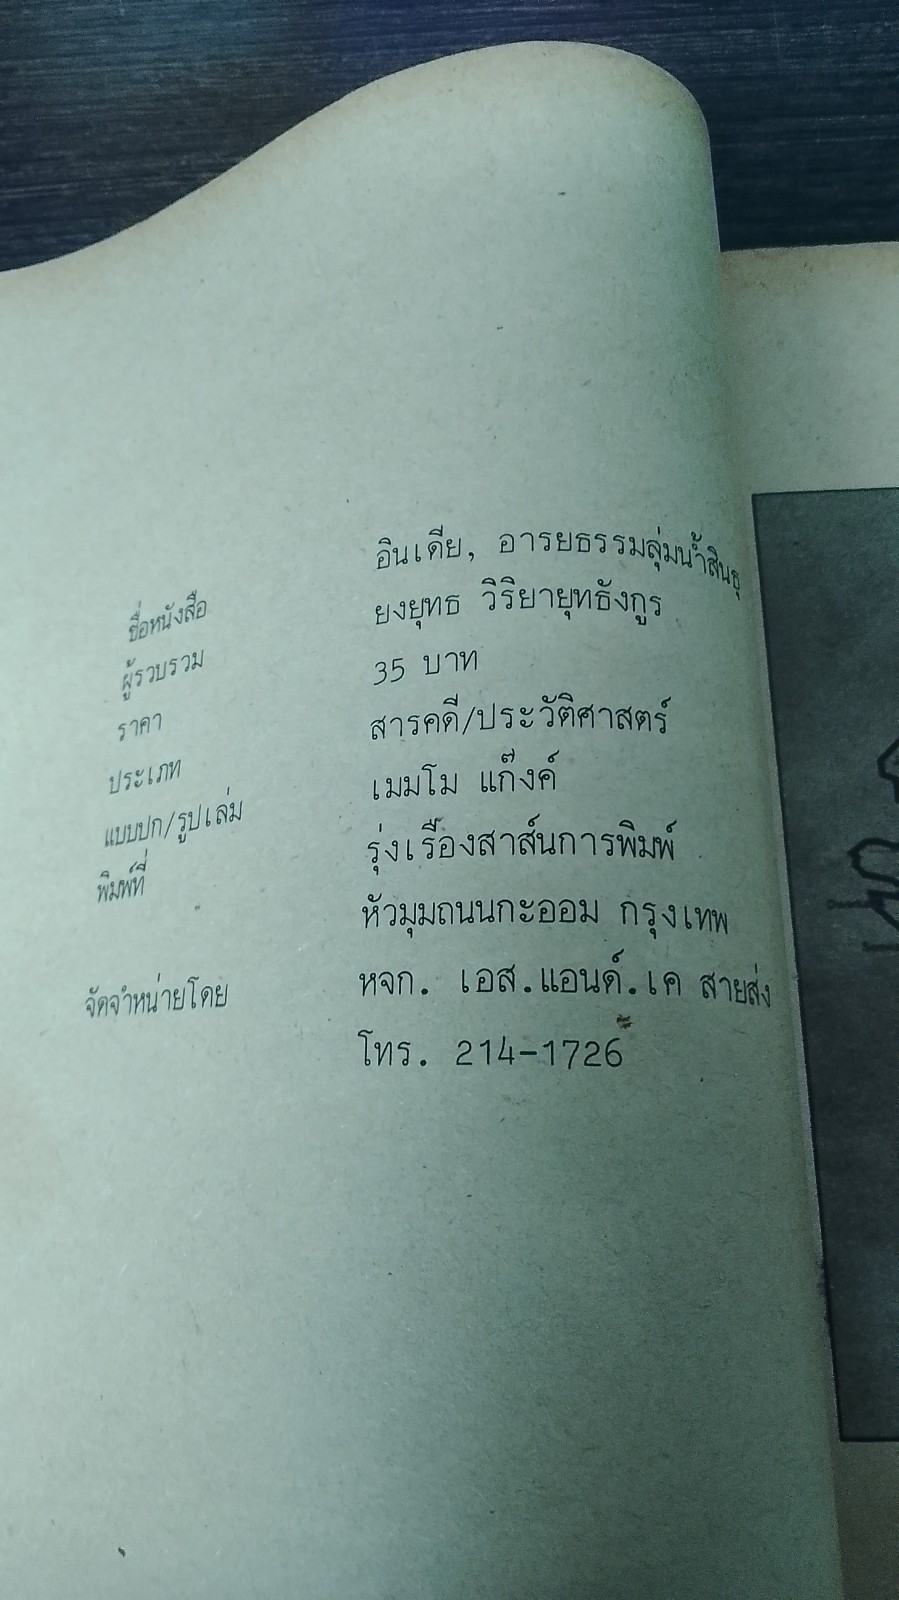 ชื่อหนังสือ อินเดีย, อารยธรรมลุ่มน้ำสินธุ
ผู้รวบรวม ยงยุทธ วิริยายุทธังกูร
ราคา 35 บาท
ประเภท สารคดี/ประวัติศาสตร์
แบบปก/รูปเล่ม เมมโม แก๊งค์
พิมพ์ที่ รุ่งเรืองสาส์นการพิมพ์
หัวมุมถนนกะออม กรุงเทพ
จัดจำหน่ายโดย หจก. เอส.แอนด์.เค สายส่ง
โทร. 214-1726